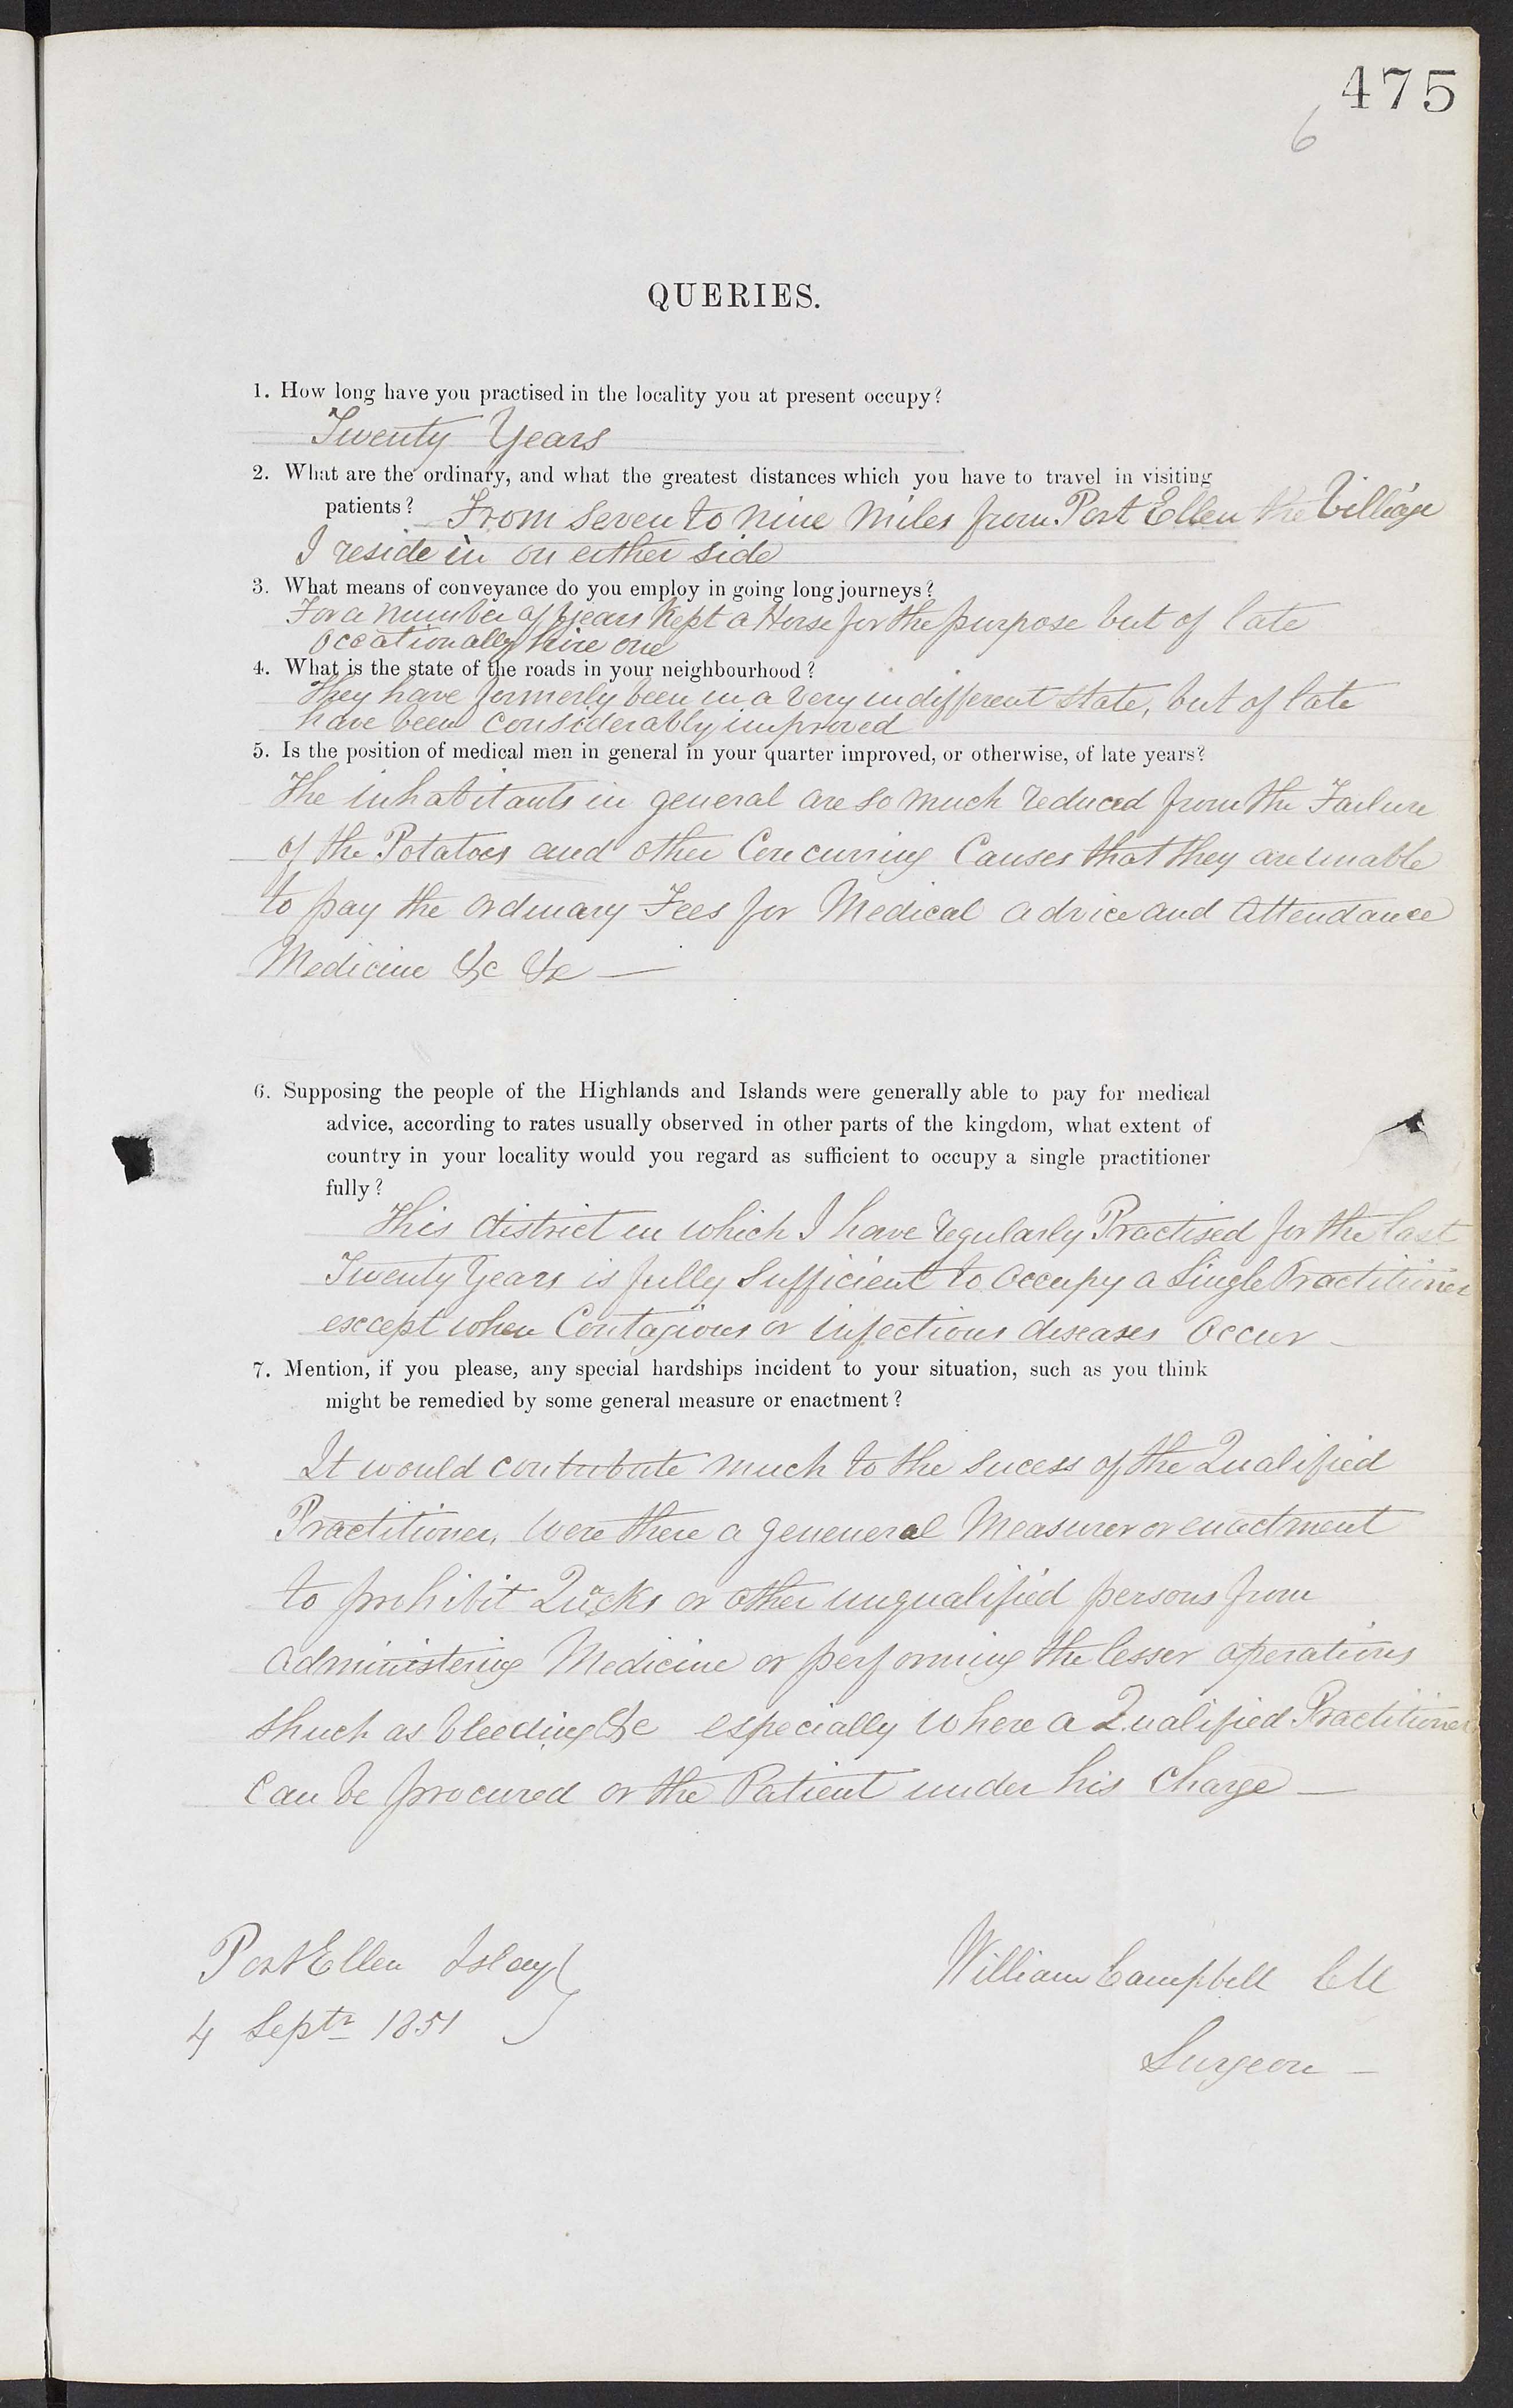 475
6
QUERIES.
1. How long have you practised in the locality you at present occupy?
Twenty Years
2. What are the ordinary, and what the greatest distances which you have to travel in visiting
patients? From Seven to nine Miles from Port Ellen the Village
I reside in on either side
3. What means of conveyance do you employ in going long journeys?
For a number of years kept a Horse for the purpose but of late
occationally hire one
4. What is the state of the roads in your neighbourhood?
They have formerly been in a very indifferent state, but of late
have been considerably improved
5. Is the position of medical men in general in your quarter improved, or otherwise, of late years?
The inhabitants in general are so much reduced from the Failure
of the Potatoes and other Concurring Causes that they are unable
to pay the ordinary Fees for Medical advice and Attendance
Medicine &c &c —
6. Supposing the people of the Highlands and Islands were generally able to pay for medical
advice, according to rates usually observed in other parts of the kingdom, what extent of
country in your locality would you regard as sufficient to occupy a single practitioner
fully?
This district in which I have regularly Practised for the last
Twenty Years is fully Sufficient to occupy a Single Practitioner
except when Contagious or infectious diseases Occur
7. Mention, if you please, any special hardships incident to your situation, such as you think
might be remedied by some general measure or enactment?
It would contribute much to the sucess of the Qualified
Practitioner, were there a geneneral Measurer or enactment
to prohibit Quacks or other unqualified persons from
administering Medicine or performing the lesser operations
shuch as bleeding &c especially where a Qualified Practitioner
Can be procured or the Patient under his charge —
Port Ellen Islay
4 Septr 1851
William Campbell CM
Surgeon —